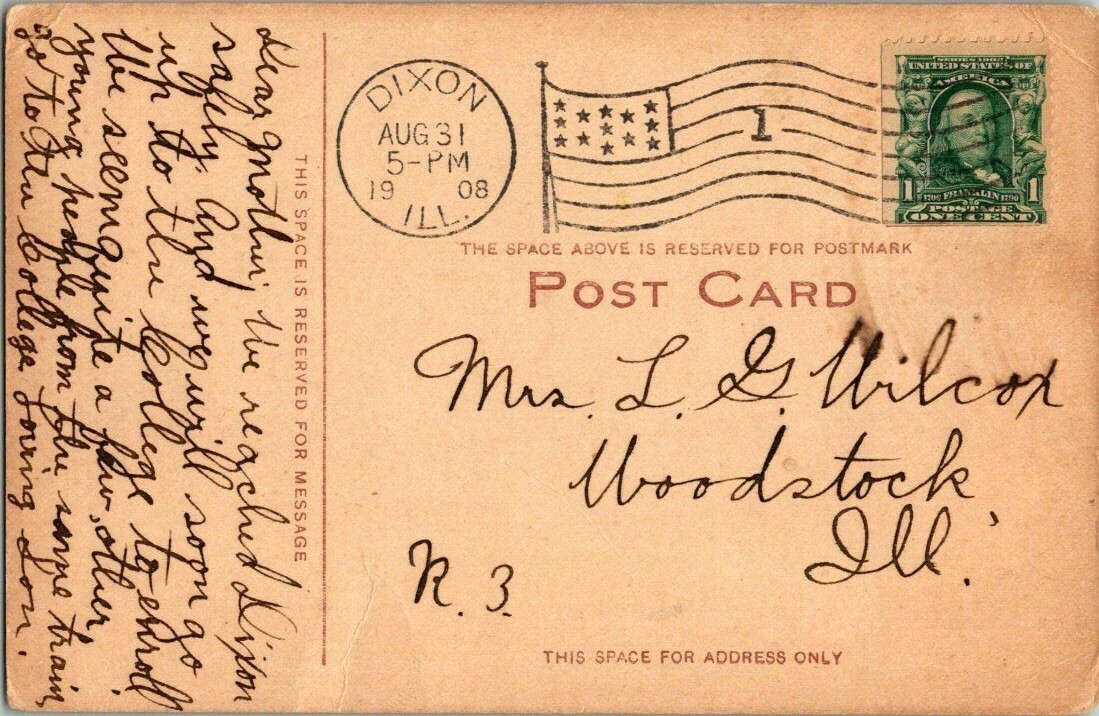 Dear Mother, We reached Dixon
safely, And we will soon go
up to the College to enroll
We seen quite a few, other
young people from the same train
go to the College Loving Son.
THIS SPACE IS RESERVED FOR MESSAGE
DIXON
AUG 31
5-PM
19 08
ILL.
1
SERIES 1902
UNITED STATES OF
AMERICA
1 1706 FRANKLIN 1790 1
POSTAGE
ONE CENT
THE SPACE ABOVE IS RESERVED FOR POSTMARK
POST CARD
Mrs. L. G. Wilcox
Woodstock
Ill.
R. 3.
THIS SPACE FOR ADDRESS ONLY